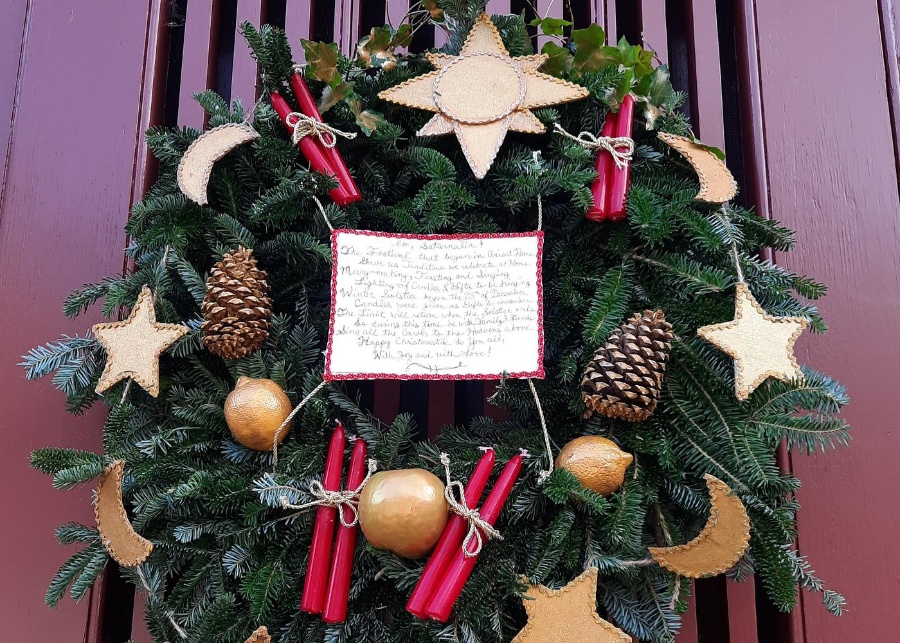 Io, Saturnalia!
The Festival that began in Ancient Rome
Gave us Traditions we celebrate at Home
Merry-making, Feasting and Singing
Lighting of Candles & Gifts to be bringing
Winter Solstice began the 25th of December
Candles were given as Gifts to remember
The Light will return when the Solstice ends
So during this time be with Family & Friends
Sing all the Carols to the Heavens above
Happy Christmastide to you all,
With Joy and with Love!